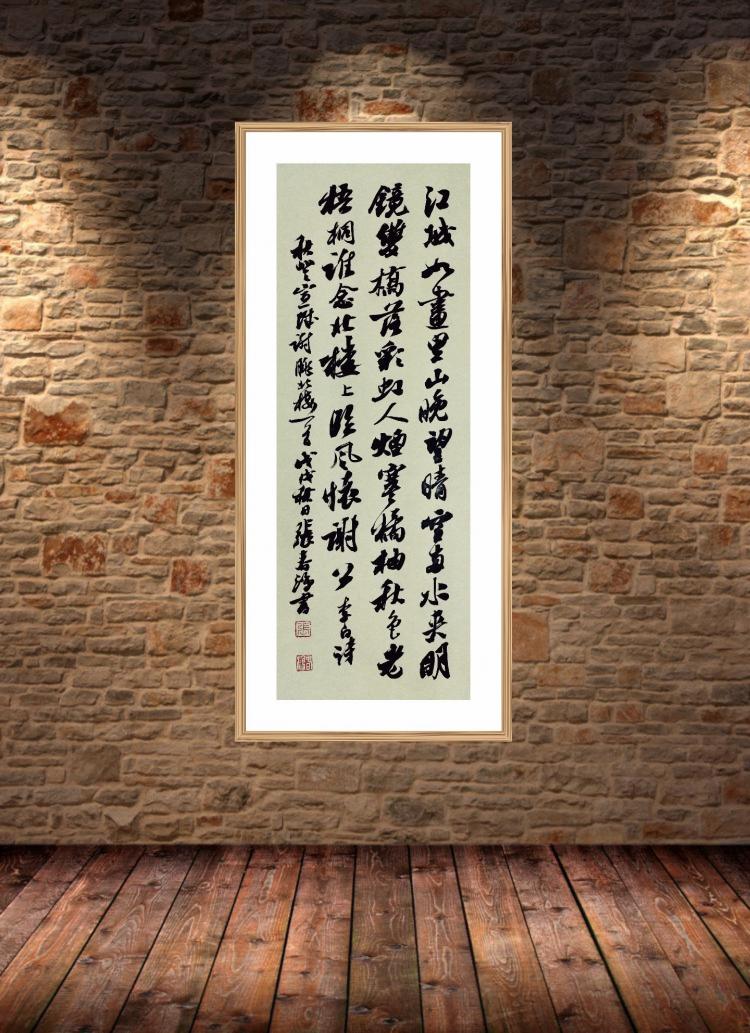 江城如畫里山晚望晴空兩水夾明
鏡雙橋落彩虹人煙寒橘柚秋色老
梧桐誰念北樓上臨風懷謝公 李白詩
秋登宣城謝朓北樓一首 戊戌秋日張春書
張